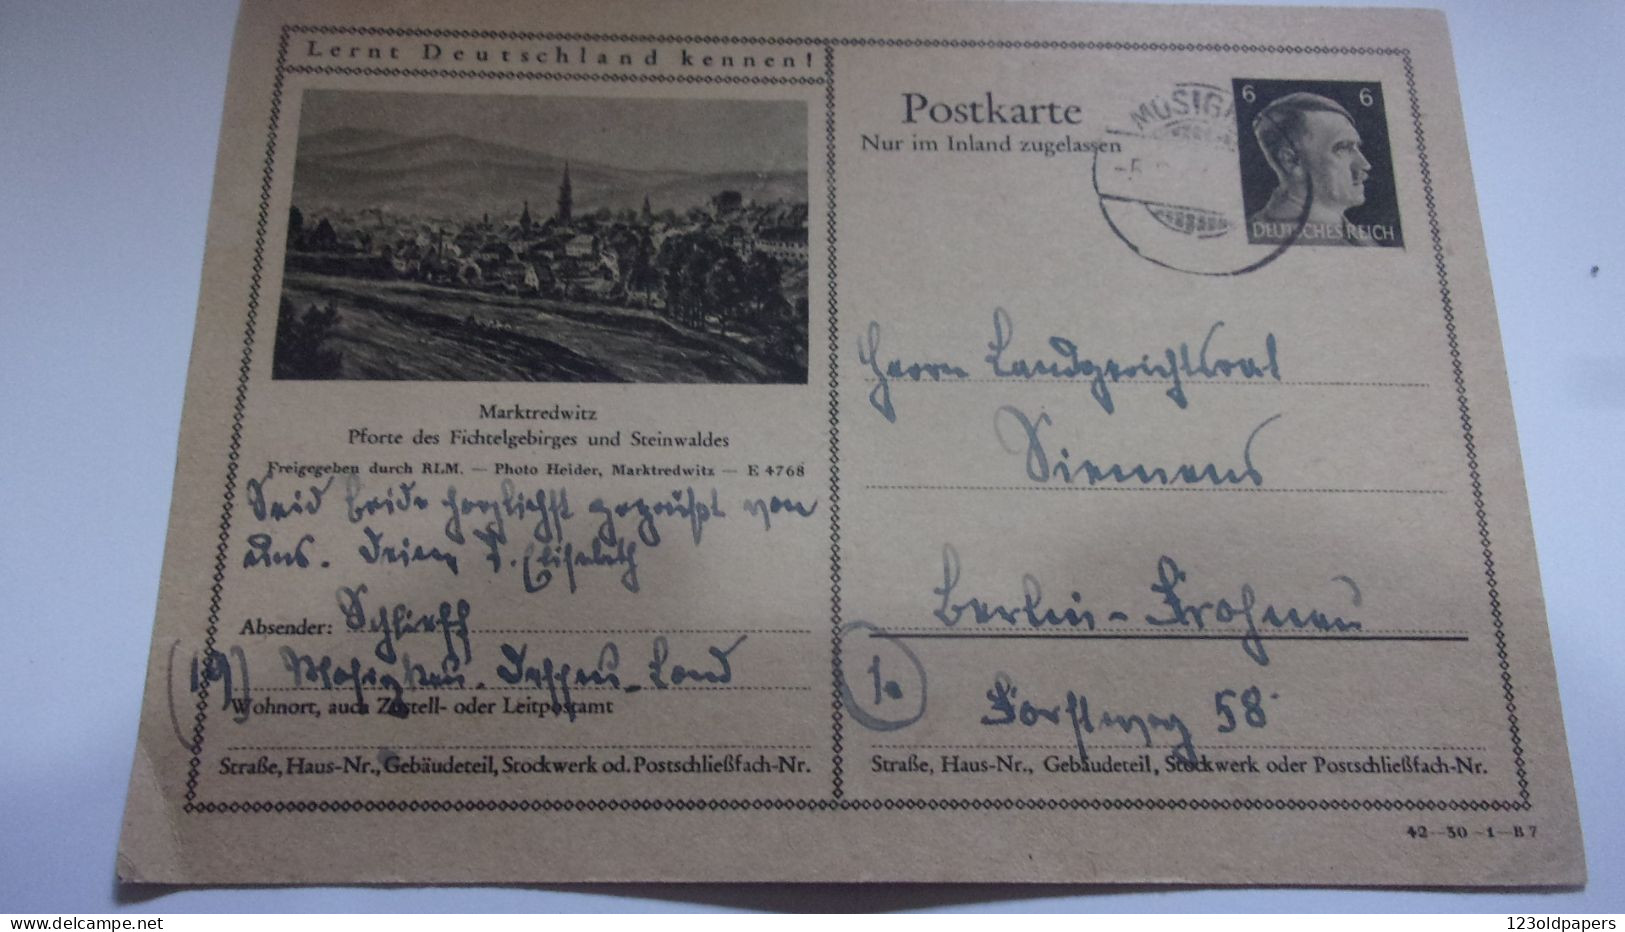 Lernt Deutschland kennen!
Marktredwitz
Pforte des Fichtelgebirges und Steinwaldes
Freigegeben durch RLM. — Photo Heider, Marktredwitz — E 4768
Seid beide herzlichst gegrüßt von
uns. Deine T. Elisabeth
Absender: Schlieff
(19) Mosigkau-Dessau-Land
Wohnort, auch Zustell- oder Leitpostamt
Straße, Haus-Nr., Gebäudeteil, Stockwerk od. Postschließfach-Nr.
Postkarte
Nur im Inland zugelassen
MOSIGK
6 6
DEUTSCHES REICH
Herrn Landgerichtsrat
Siemens
Berlin-Frohnau
1a
Forstweg 58
Straße, Haus-Nr., Gebäudeteil, Stockwerk oder Postschließfach-Nr.
42—30—1—B7
123oldpapers